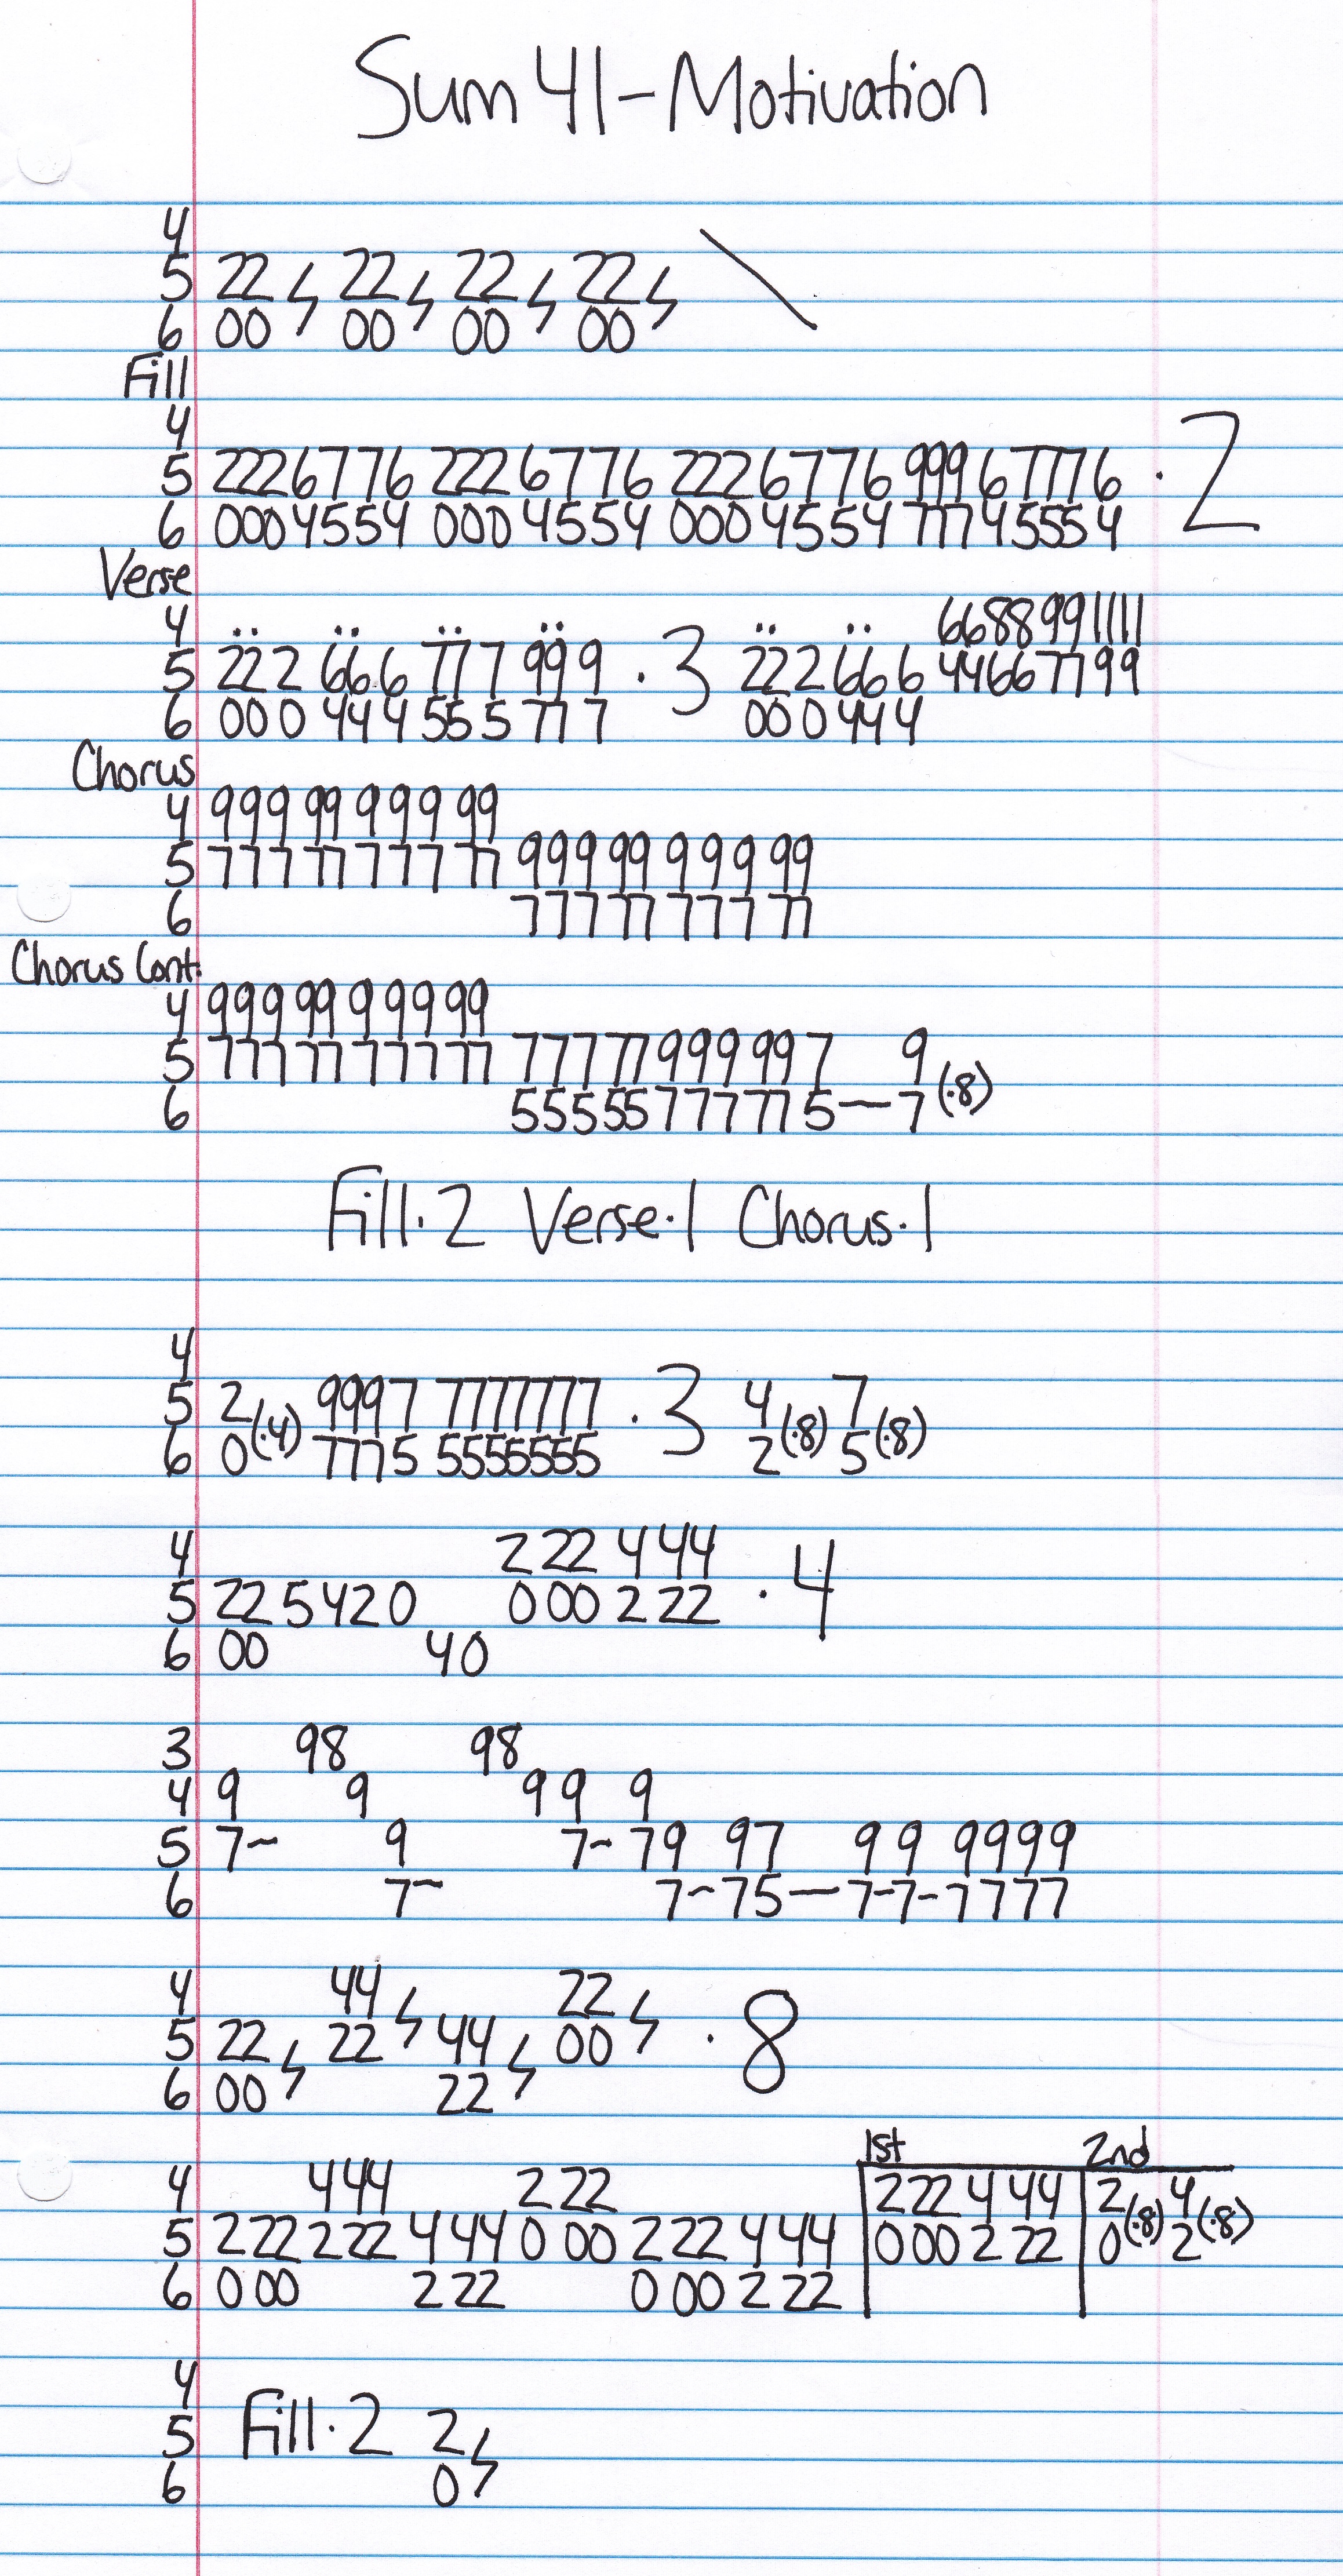 Sum 41 - Motivation
4
5 22 22 22 22
6 00 00 00 00
Fill
4
5 2226776 2226776 2226776 99967776 · 2
6 0004554 0004554 0004554 77745554
Verse
4 668899 1111
5 22 2 66 6 77 7 99 9 · 3 22 2 66 6 44667799
6 00 0 44 4 55 5 77 7 00 0 44 4
Chorus
4 999 99 9 99 99
5 777 77 7 77 77 999 99 9 9 99
6 777 77 7 7 77
Chorus Cont.
4 999 99 9 99 99
5 777 77 7 77 77 777 77 999 99 7 9
6 555 55 777 77 5 — 7 (·8)
Fill·2 Verse·1 Chorus·1
4
5 2 9997 7777777 · 3 4 7
6 0 (·4) 7775 5555555 2 (·8) 5 (·8)
4 2 22 4 44
5 22 5 4 2 0 0 00 2 22 · 4
6 00 4 0
3 98 98
4 9 9 9 9 9
5 7~ 9 7~ 79 97 9 9 9999
6 7~ 7~75—7-7-7777
4 44 22
5 22 22 44 00 · 8
6 00 22
1st 2nd
4 444 2 22 2 22 4 44 2 4
5 222 222 4 44 0 00 2 22 4 44 0 00 2 22 0 (·8) 2 (·8)
6 0 00 2 22 0 00 2 22
4
5 Fill·2 2
6 0